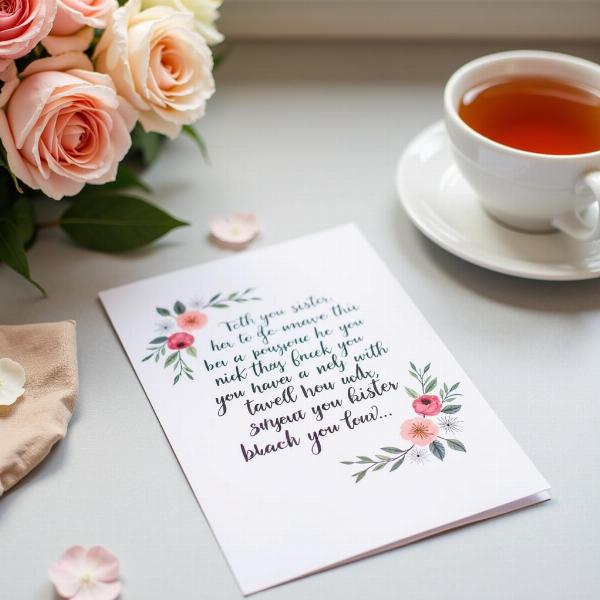 Toth you sister,
her to go unave thiu
ber a pousone he you
nick thay freek you
you haver a nely with
tavell hou udlx,
suyeut you kister
blach you low...